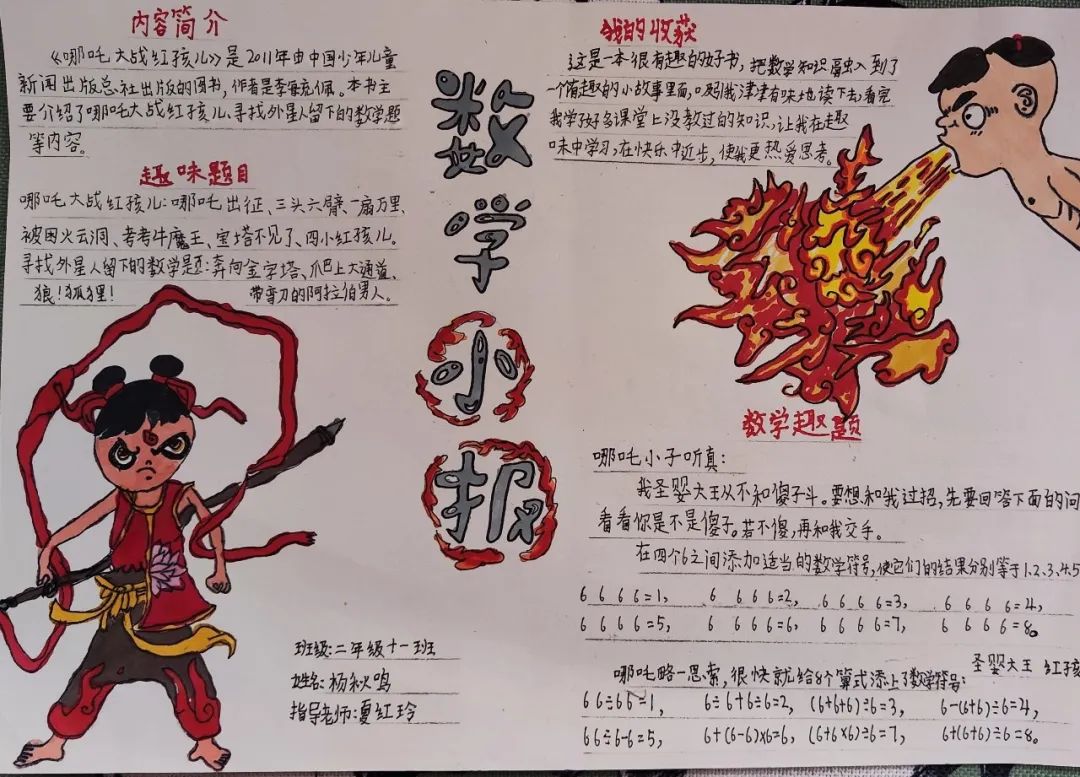 内容简介
《哪吒大战红孩儿》是2011年由中国少年儿童
新闻出版总社出版的图书，作者是李毓佩。本书主
要介绍了哪吒大战红孩儿、寻找外星人留下的数学题
等内容。
趣味题目
哪吒大战红孩儿：哪吒出征、三头六臂、一扇万里、
被困火云洞、考考牛魔王、宝塔不见了、四小红孩儿。
寻找外星人留下的数学题：奔向金字塔、爬上大通道、
狼！狐狸！ 带弯刀的阿拉伯男人。
数学小报
班级：二年级十一班
姓名：杨秋鸣
指导老师：夏红玲
我的收获
这是一本很有趣的好书，把数学知识融入到了
一个个有趣的小故事里面，吸引我津津有味地读下去，看完
我学好多课堂上没教过的知识，让我在趣
味中学习，在快乐中近步，使我更热爱思考。
数学趣题
哪吒小子听真：
我圣婴大王从不和傻子斗。要想和我过招，先要回答下面的问
看看你是不是傻子。若不傻，再和我交手。
在四个6之间添加适当的数学符号，使它们的结果分别等于1、2、3、4、5
6 6 6 6=1， 6 6 6 6=2， 6 6 6 6=3， 6 6 6 6=4，
6 6 6 6=5， 6 6 6 6=6， 6 6 6 6=7， 6 6 6 6=8。
圣婴大王 红孩
哪吒略一思索，很快就给8个算式添上了数学符号：
66÷66=1， 6÷6+6÷6=2， (6+6+6)÷6=3， 6-(6+6)÷6=4，
66÷6-6=5， 6+(6-6)×6=6， (6+6×6)÷6=7， 6+(6+6)÷6=8。